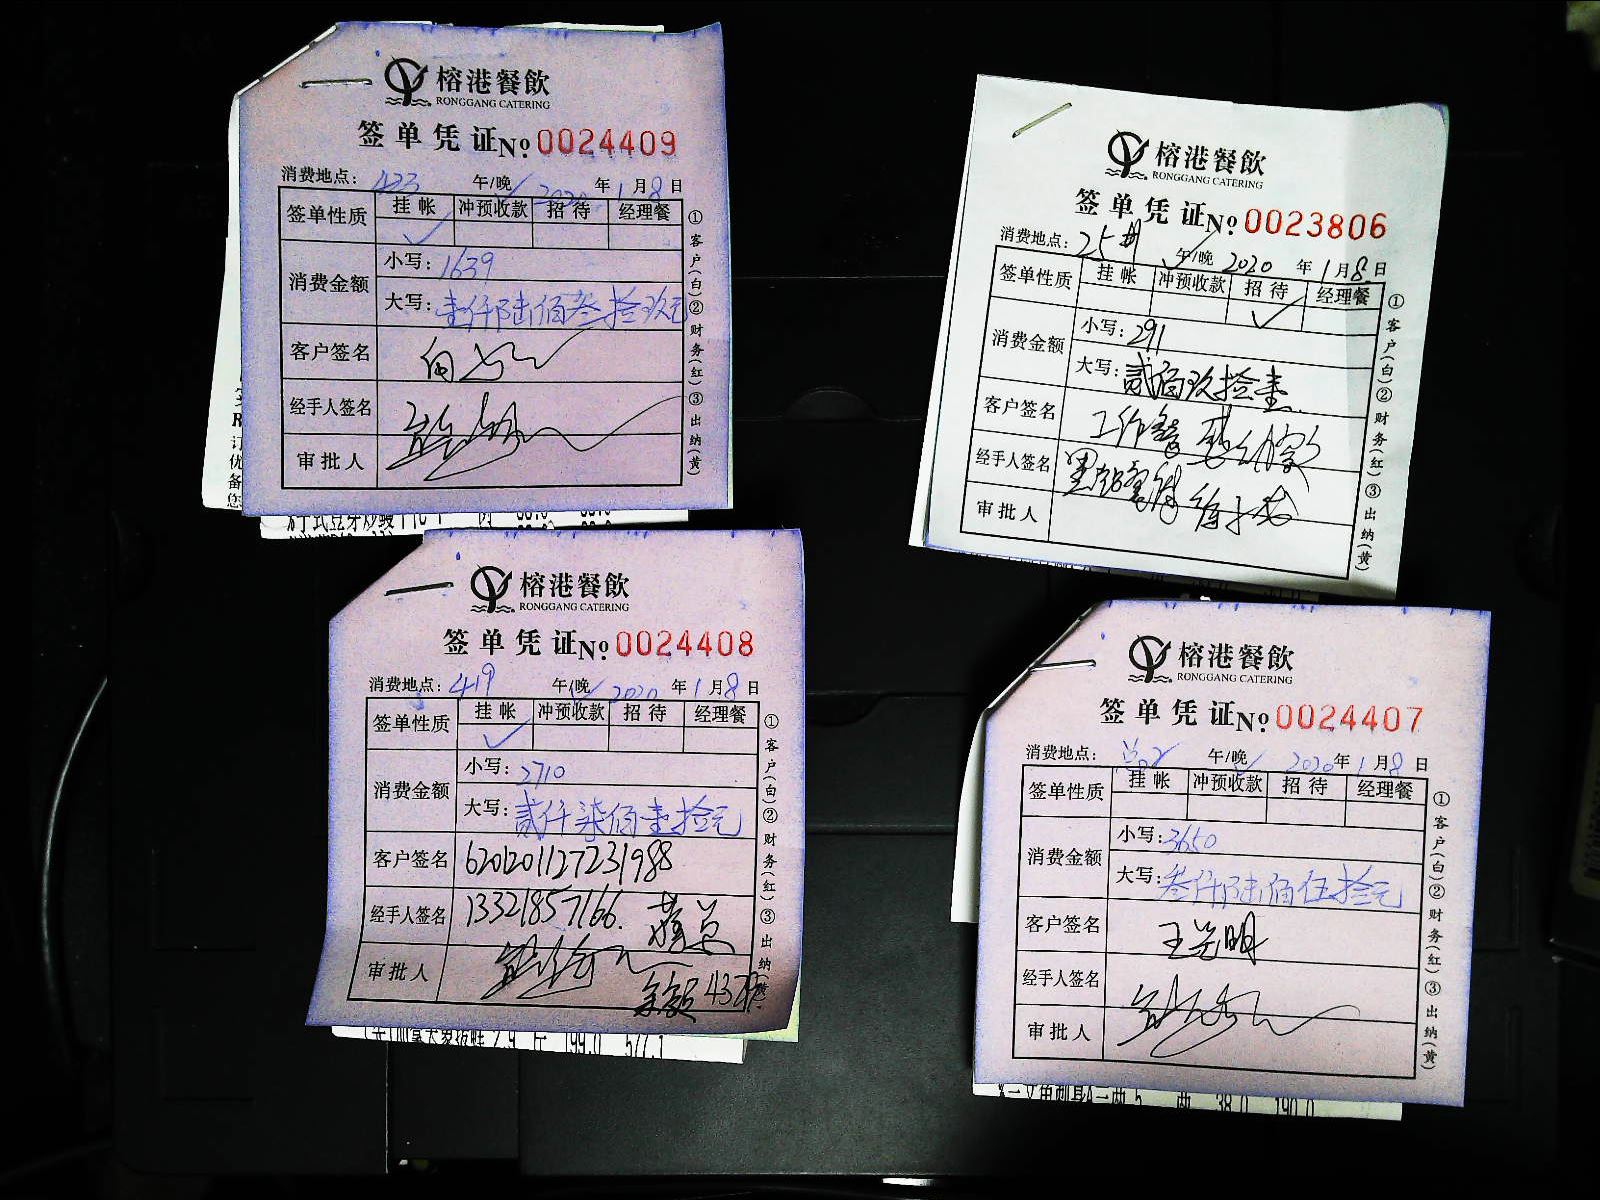 榕港餐飲
RONGGANG CATERING
签单凭证 No. 0024409
消费地点: 423 午/晚 2020 年 1 月 8 日
签单性质 挂帐 冲预收款 招待 经理餐
消费金额
小写: 1639
大写: 壹仟陆佰叁拾玖元
客户签名
经手人签名
审批人
①客户(白)②财务(红)③出纳(黄)
榕港餐飲
RONGGANG CATERING
签单凭证 No. 0023806
消费地点: 25# 午/晚 2020 年 1 月 8 日
签单性质 挂帐 冲预收款 招待 经理餐
消费金额
小写: 291
大写: 贰佰玖拾壹
客户签名 工作餐
经手人签名
审批人
①客户(白)②财务(红)③出纳(黄)
榕港餐飲
RONGGANG CATERING
签单凭证 No. 0024408
消费地点: 419 午/晚 2020 年 1 月 8 日
签单性质 挂帐 冲预收款 招待 经理餐
消费金额
小写: 2710
大写: 贰仟柒佰壹拾元
客户签名 6201201127231988
经手人签名 13321857166.
审批人
余额
①客户(白)②财务(红)③出纳
199.0 577.1
榕港餐飲
RONGGANG CATERING
签单凭证 No. 0024407
消费地点: 午/晚 2020 年 1 月 8 日
签单性质 挂帐 冲预收款 招待 经理餐
消费金额
小写: 3650
大写: 叁仟陆佰伍拾元
客户签名 王光明
经手人签名
审批人
①客户(白)②财务(红)③出纳(黄)
38.0 190.0